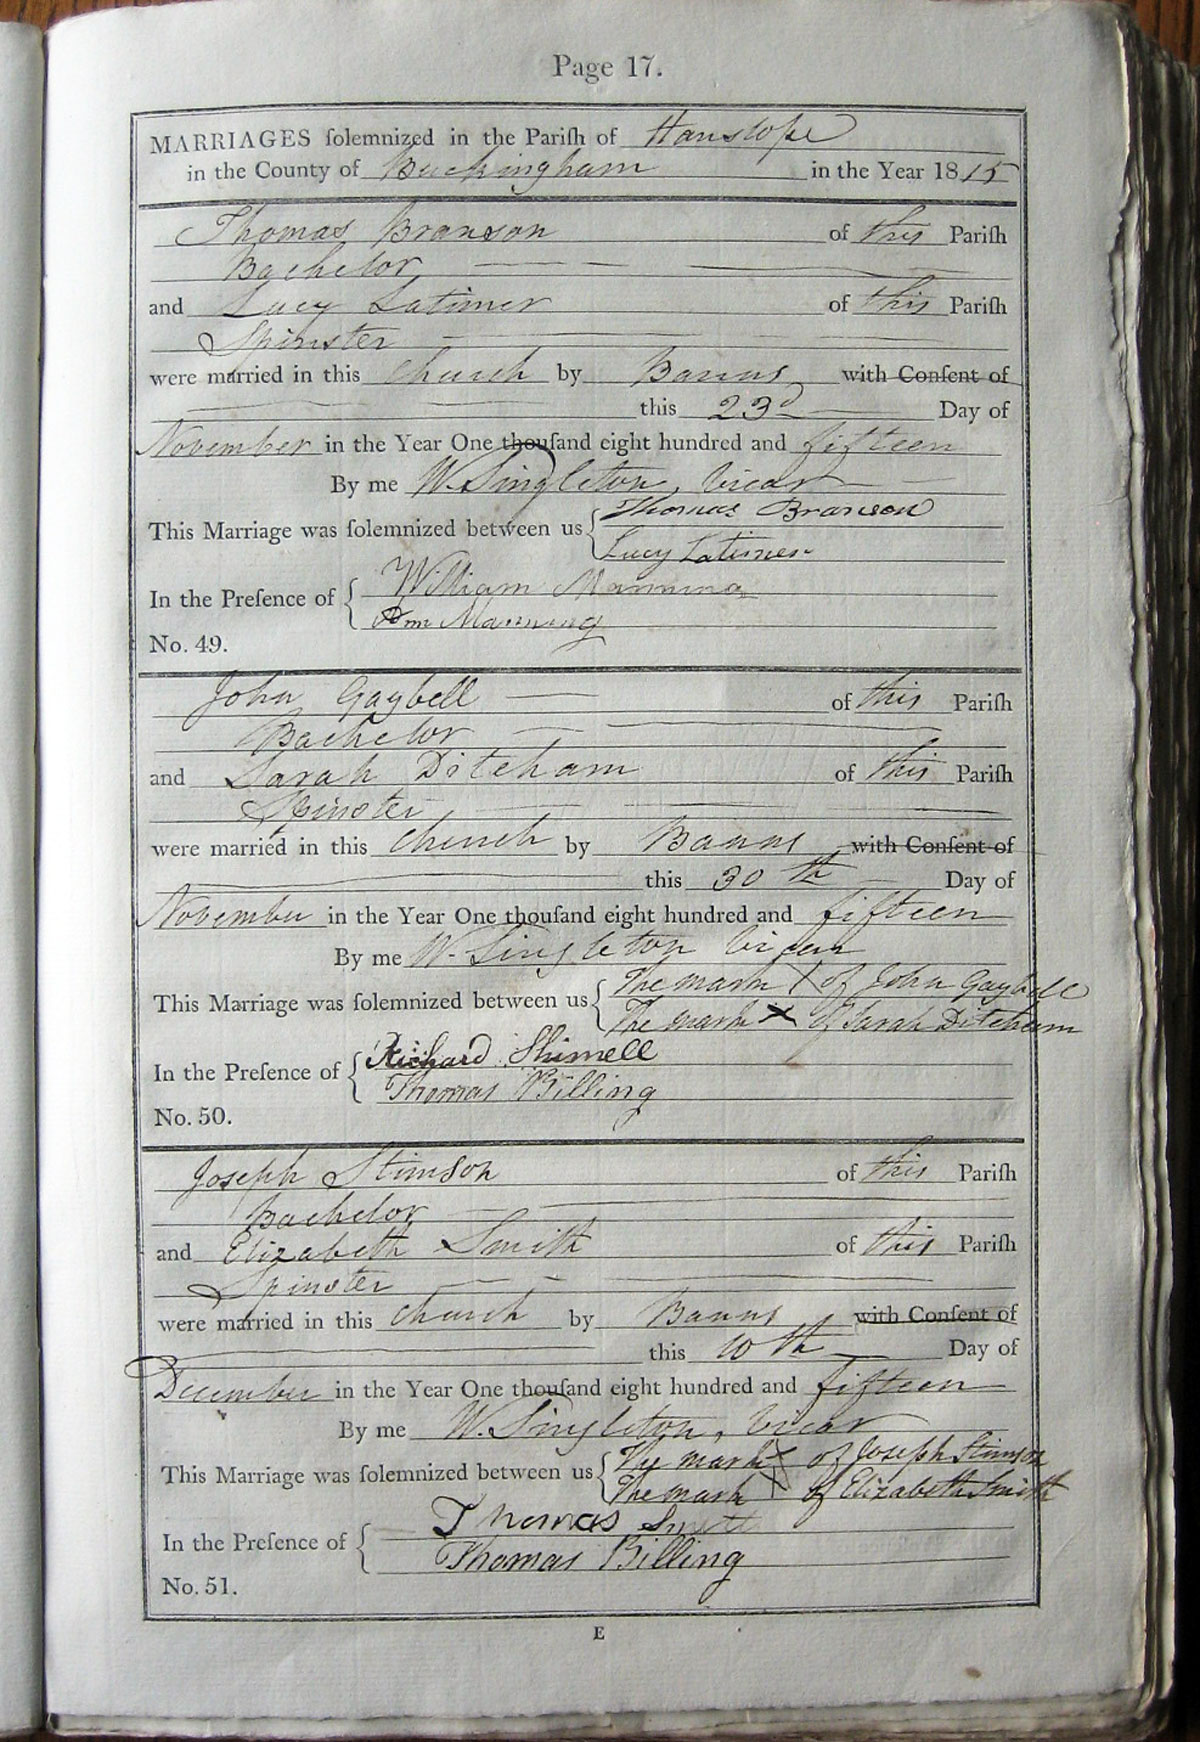 Page 17.
MARRIAGES ſolemnized in the Pariſh of Hanslope
in the County of Buckingham in the Year 1815
Thomas Branson of this Pariſh
Bachelor
and Lucy Latimer of this Pariſh
Spinster
were married in this Church by Banns with Conſent of
this 23d Day of
November in the Year One thouſand eight hundred and fifteen
By me W. Singleton, Vicar
This Marriage was ſolemnized between us { Thomas Branson
Lucy Latimer
In the Preſence of { William Manning
Ann Manning
No. 49.
John Gaybell of this Pariſh
Bachelor
and Sarah Ditcham of this Pariſh
Spinster
were married in this Church by Banns with Conſent of
this 30th Day of
November in the Year One thouſand eight hundred and fifteen
By me W. Singleton Vicar
This Marriage was ſolemnized between us { The mark X of John Gaybell
The mark X of Sarah Ditcham
In the Preſence of { Richard Shimell
Thomas Billing
No. 50.
Joseph Stimson of this Pariſh
Bachelor
and Elizabeth Smith of this Pariſh
Spinster
were married in this Church by Banns with Conſent of
this 10th Day of
December in the Year One thouſand eight hundred and fifteen
By me W. Singleton, Vicar
This Marriage was ſolemnized between us { The mark X of Joseph Stimson
The mark X of Elizabeth Smith
In the Preſence of { Thomas Smith
Thomas Billing
No. 51.
E